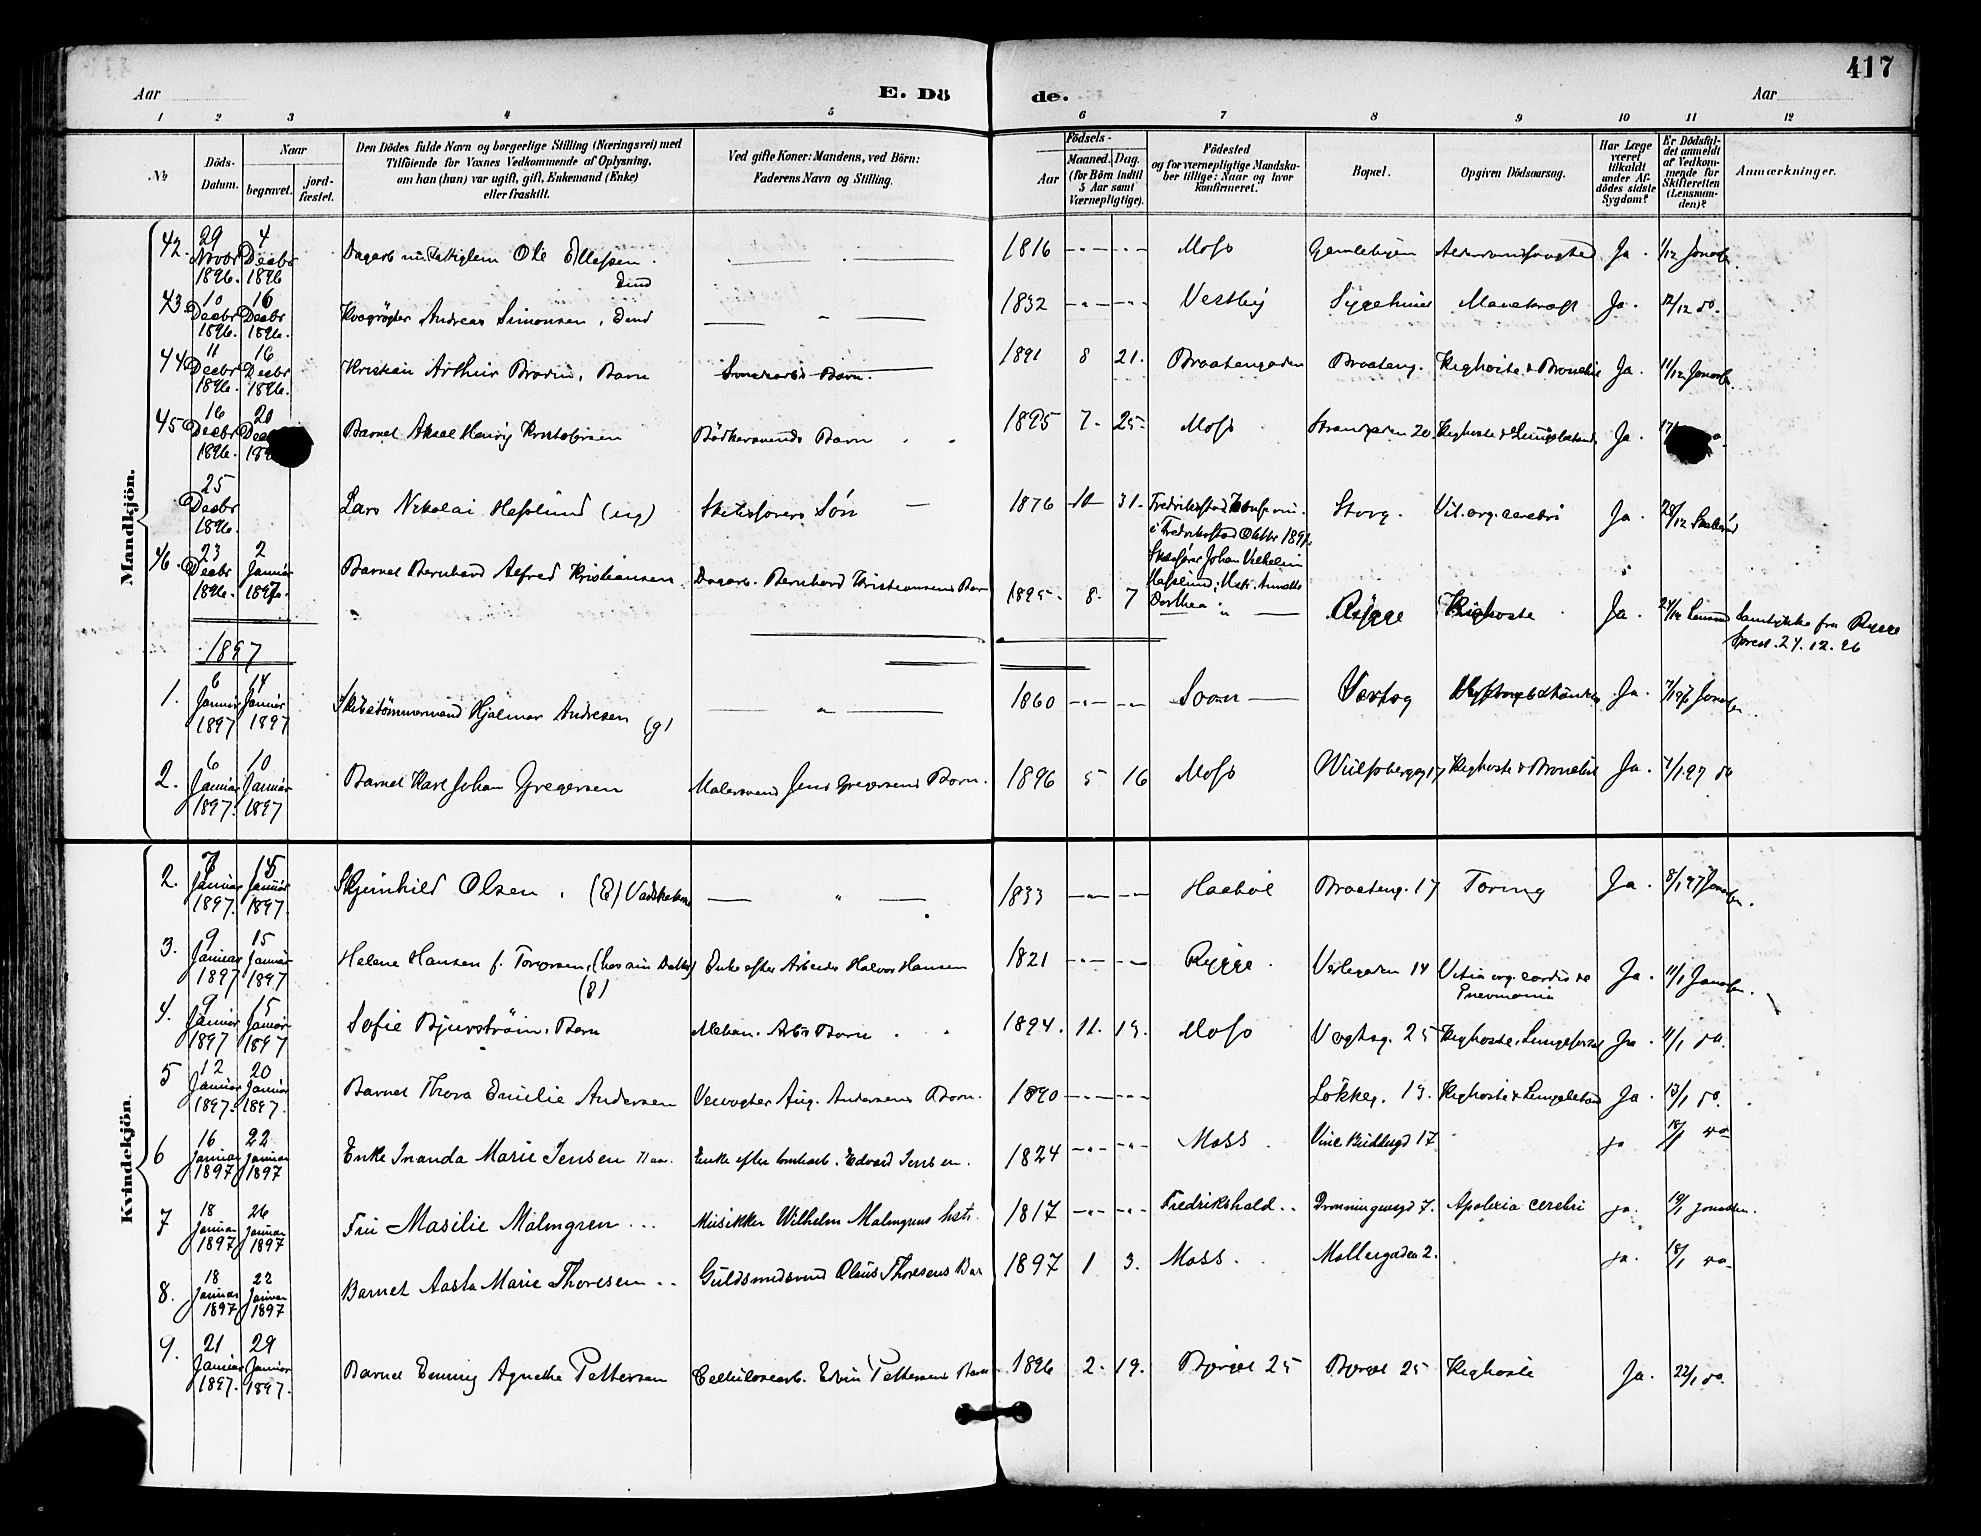 417
Aar
E. Dö
de.
Aar
1 2 3 4 5 6 7 8 9 10 11 12
No
Döds-Datum.
Naar
begravet.
jord-fæstet.
Den Dödes fulde Navn og borgerlige Stilling (Næringsvei) med
Tilföiende for Voxnes Vedkommende af Oplysning,
om han (hun) var ugift, gift, Enkemand (Enke)
eller fraskilt.
Ved gifte Koner: Mandens, ved Börn:
Faderens Navn og Stilling.
Födsels-
Aar
Maaned. Dag.
(for Börn indtil
5 Aar samt
Værnepligtige).
Födested
og for værnepligtige Mandska-
ber tillige: Naar og hvor
konfirmeret.
Bopæl.
Opgiven Dödsaarsag.
Har Læge
været
tilkaldt
under Af-
dödes sidste
Sygdom?
Er Dödsfal-
det anmeldt
af Vedkom-
mende for
Skifteretten
(Lensman-
den)?
Anmærkninger.
Mandkjön.
42. 29 Novbr 1896. 4 Decbr 1896 Dagarb. Ole Ellefsen. Emd 1816 Moss Gamlebyen Ja.
43. 10 Decbr 1896. 16 Decbr 1896. Andreas Simonsen, Emd 1832 Vestby Sygehuset Mavekræft Ja. 12/12 do.
44 11 Decbr 1896. 16 Decbr 1896. Kristian Arthur Brodin, Barn Barn. 1891 8 21. Braatengaden Braateng. Kighoste & Bronchit Ja. 11/12
45 16 Decbr 1896. 20 Barnet Aksel Henry Kristofersen Bödkersvends Barn 1895 7. 25. Moss Strandgaden 20. Kighoste & Ja.
25 Decbr 1896. Lars Nikolai Hafslund (ug) Søn 1876 10 31. Fredrikstad Konfirm.
i Fredrikstad Oktbr 189
Johan Vilhelm
Hafslund, Annette
Dorthea
Storg. Vit. org. cerebri Ja. 28/12
46. 23 Decbr 1896. 2 Januar 1897. Barnet Bernhard Alfred Kristiansen Dagarb. Bernhard Kristiansens Barn 1895. 8. 7 Rygge Kighoste Ja. Samtykke fra Rygge
Sprest. 27.12.96
1897
1. 6 Januar 1897 14 Januar 1897 Skibstömmermand Hjalmar Andresen (g) 1860 Soon Ja.
2. 6 Januar 1897. 10 Januar 1897 Barnet Karl Johan Gregersen Malersvend Jens Gregersens Barn. 1896 5 16 Moss Wulfsbergg 17 Kighoste & Bronchit Ja. 7/1.97 do
Kvindekjön.
2. 7 Januar 1897. 15 Januar 1897. Olsen, (E) Vadskekone 1833 Haaböl Braateng. 17 Tæring Ja. 8/1 97
3. 9 Januar 1897 15 Januar 1897 Helene Hansen f. (hos sin Datter) (E) Enke efter Arbeider Halvor Hansen 1821 Rygge. Verlegaden 14 Vitia org. cordis &
Pneumonia Ja. 11/1
4. 9 Januar 1897 15 Januar 1897 Sofie Bjurström, Barn Mekan. Arbs Barn 1894. 11. 19. Moss Vogtsg. 25 Kighoste, Ja. 11/1 do.
5 12 Januar 1897. 20 Januar 1897. Barnet Thora Emilie Andersen Veivogter Aug. Andersens Barn. 1890 Løkkeg. 19. Kighoste & Ja. 13/1 do.
6 16 Januar 1897 22 Januar 1897 Enke Inanda Marie Jensen Enke efter Edvard Jensen. 1824 Moss 17. ja 18/1 do
7 18 Januar 1897 26 Januar 1897 Fru Masilie Malmgren Musikker Wilhelm Malmgrens hstr. 1817 Fredrikshald Dronningensgd 7. Apolexia cerebri ja. 19/1
8. 18 Januar 1897 22 Januar 1897 Barnet Aasta Marie Thoresen Guldsmedsvend Olaus Thoresens Bar 1897 1 3. Moss. Møllergaden 2. ja. 18/1 do
9. 21 Januar 1897. 29 Januar 1897. Barnet Emmy Agnethe Pettersen Cellulosearb. Edvin Pettersens Barn 1896 2. 19. 25 25 Kighoste Ja. 22/1 do.